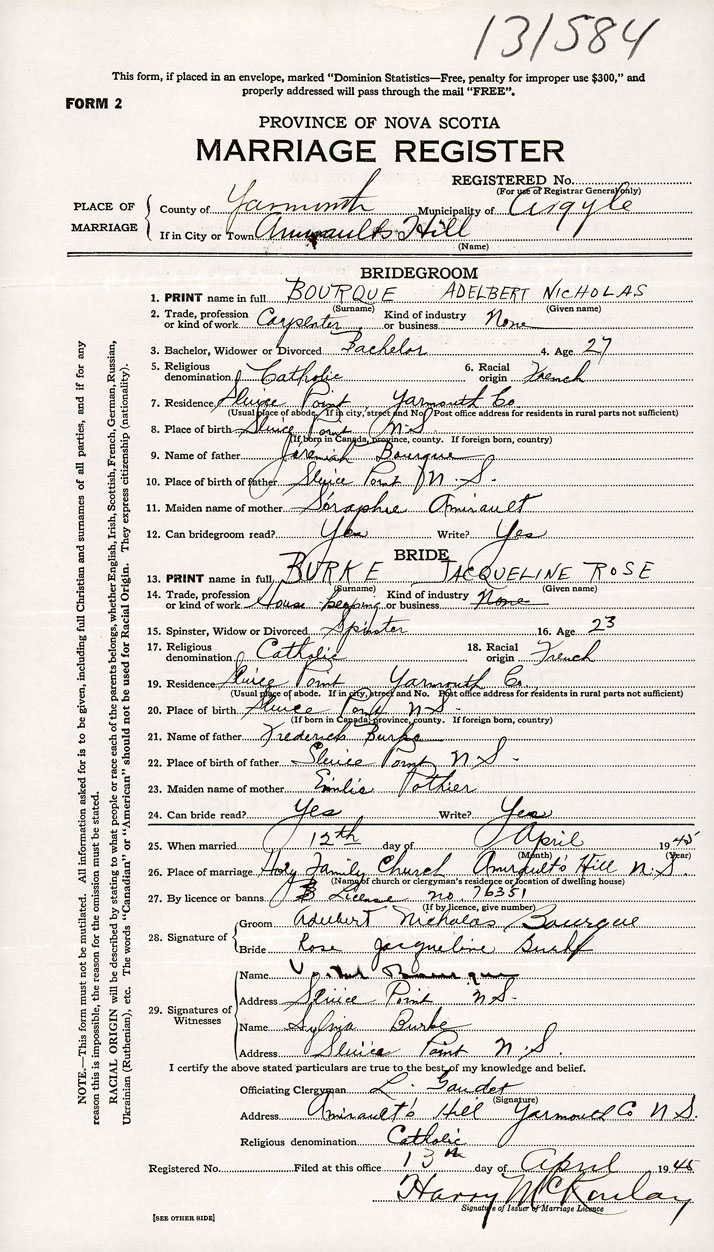 131584
This form, if placed in an envelope, marked “Dominion Statistics—Free, penalty for improper use $300,” and
properly addressed will pass through the mail “FREE”.
FORM 2
PROVINCE OF NOVA SCOTIA
MARRIAGE REGISTER
REGISTERED No.
(For use of Registrar General only)
PLACE OF MARRIAGE
County of Yarmouth Municipality of Argyle
If in City or Town Amiraults Hill
(Name)
BRIDEGROOM
1. PRINT name in full BOURQUE ADELBERT NICHOLAS
(Surname) (Given name)
2. Trade, profession or kind of work Carpenter Kind of industry or business None
3. Bachelor, Widower or Divorced Bachelor 4. Age 27
5. Religious denomination Catholic 6. Racial origin French
7. Residence Sluice Point Yarmouth Co
(Usual place of abode. If in city, street and No. Post office address for residents in rural parts not sufficient)
8. Place of birth Sluice Point N.S.
(If born in Canada, province, county. If foreign born, country)
9. Name of father Jeremiah Bourque
10. Place of birth of father Sluice Point N.S.
11. Maiden name of mother Séraphie Amirault
12. Can bridegroom read? Yes Write? Yes
BRIDE
13. PRINT name in full BURKE JACQUELINE ROSE
(Surname) (Given name)
14. Trade, profession or kind of work House keeping Kind of industry or business None
15. Spinster, Widow or Divorced Spinster 16. Age 23
17. Religious denomination Catholic 18. Racial origin French
19. Residence Sluice Point Yarmouth Co.
(Usual place of abode. If in city, street and No. Post office address for residents in rural parts not sufficient)
20. Place of birth Sluice Point N.S.
(If born in Canada, province, county. If foreign born, country)
21. Name of father Frederick Burke
22. Place of birth of father Sluice Point N.S.
23. Maiden name of mother Emilie Pothier
24. Can bride read? Yes Write? Yes
25. When married 12th day of April 1945
(Month) (Year)
26. Place of marriage Holy Family Church Amirault's Hill N.S.
(Name of church or clergyman's residence or location of dwelling house)
27. By licence or banns License no. 76351
(If by licence, give number)
28. Signature of
Groom Adelbert Nicholas Bourque
Bride Rose Jacqueline Burke
29. Signatures of Witnesses
Name Bourque
Address Sluice Point N.S.
Name Sylvia Burke
Address Sluice Point N.S.
I certify the above stated particulars are true to the best of my knowledge and belief.
Officiating Clergyman L. Gaudet
(Signature)
Address Amirault's Hill Yarmouth Co N.S.
Religious denomination Catholic
Registered No. Filed at this office 13th day of April 1945
Harry McKinlay
Signature of Issuer of Marriage Licence
[SEE OTHER SIDE]
NOTE.—This form must not be mutilated. All information asked for is to be given, including full Christian and surnames of all parties, and if for any
reason this is impossible, the reason for the omission must be stated.
RACIAL ORIGIN will be described by stating to what people or race each of the parents belongs, whether English, Irish, Scottish, French, German, Russian,
Ukrainian (Ruthenian), etc. The words “Canadian” or “American” should not be used for Racial Origin. They express citizenship (nationality).